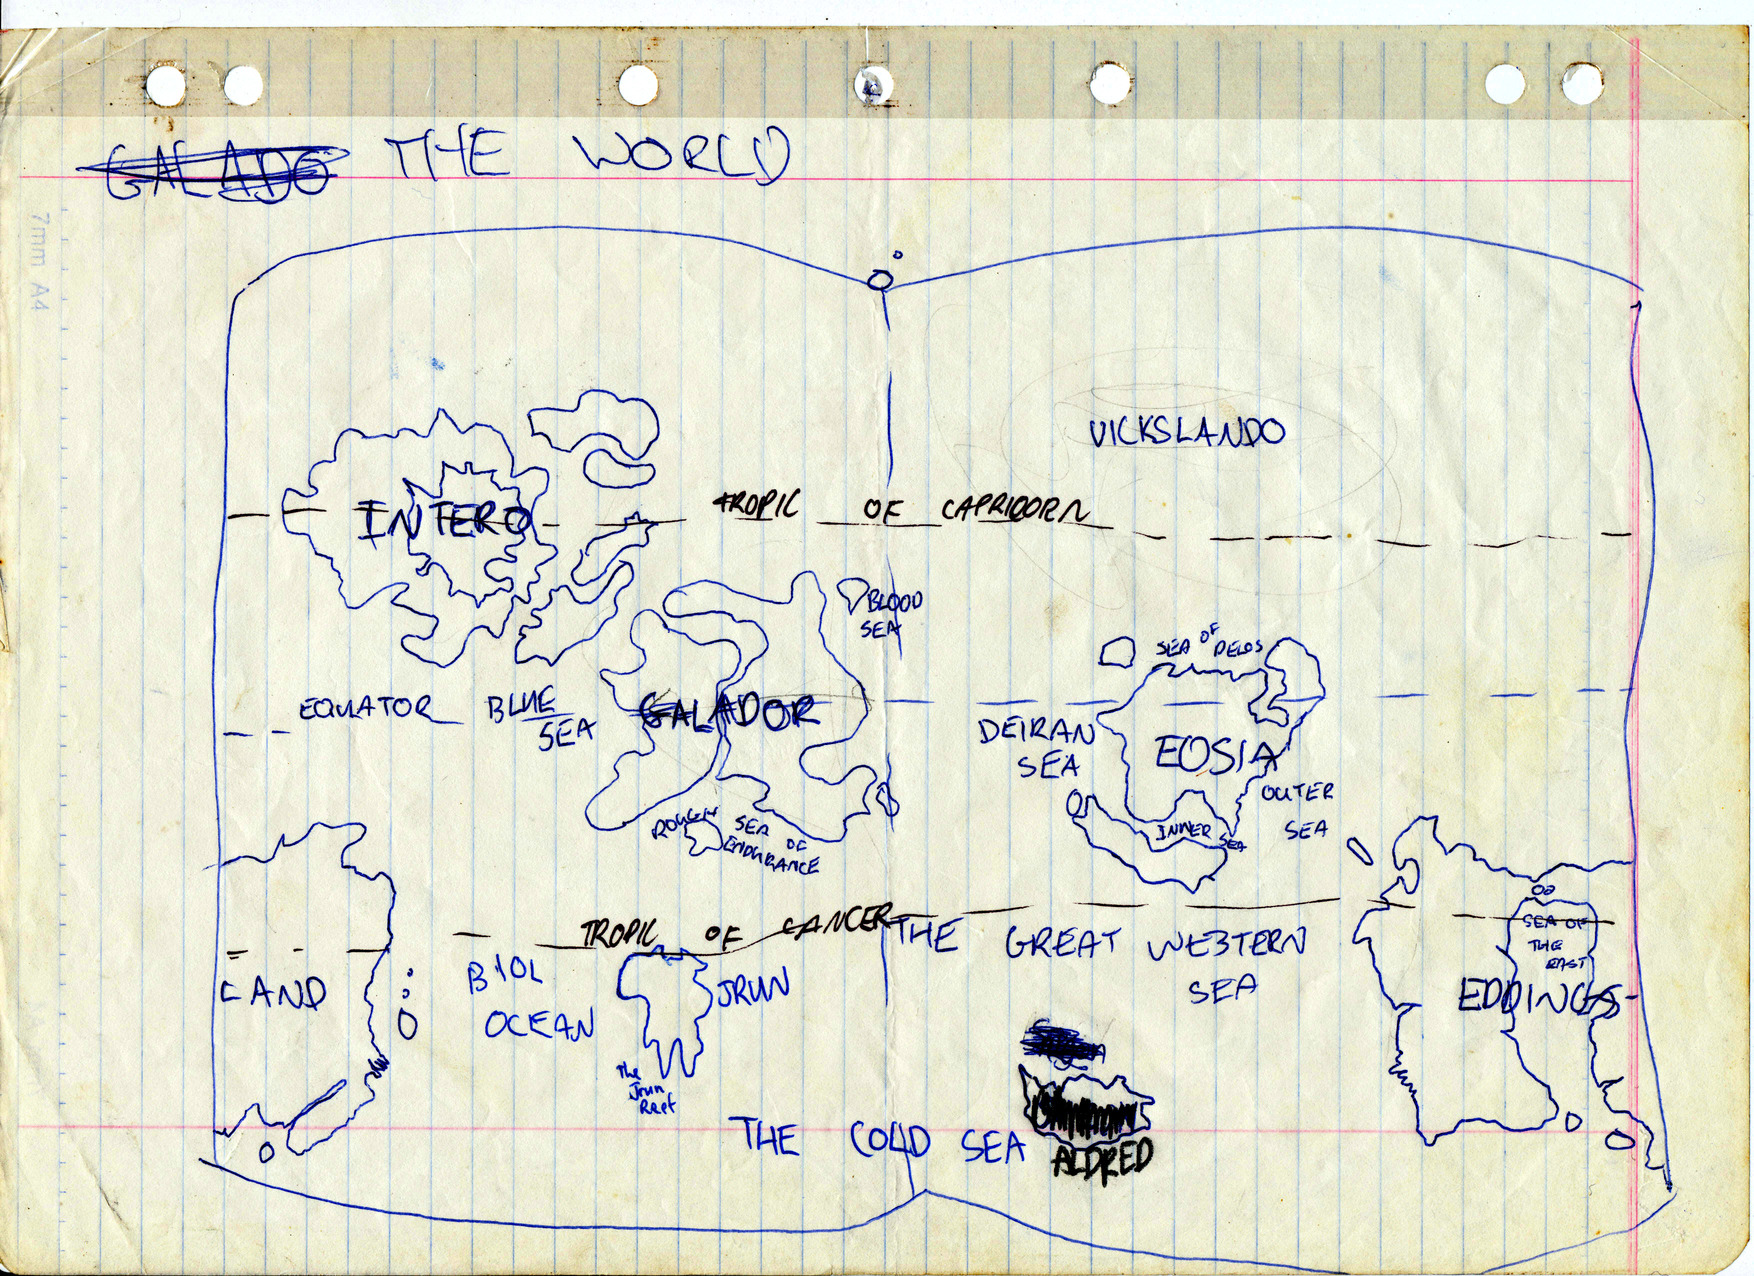 GALADO THE WORLD
7mm A4
VICKSLANDO
INTERO
TROPIC OF CAPRICORN
BLOOD
SEA
SEA OF DELOS
EQUATOR
BLUE
SEA
GALADOR
DEIRAN
SEA
EOSIA
OUTER
SEA
INNER SEA
ROUGH
SEA
OF
ENDURANCE
TROPIC OF CANCER
THE GREAT WESTERN
SEA
SEA OF
THE
EAST
LAND
OCEAN
JRUN
EDDINGS
The
Jrun
Reef
THE COLD SEA
ALDRED